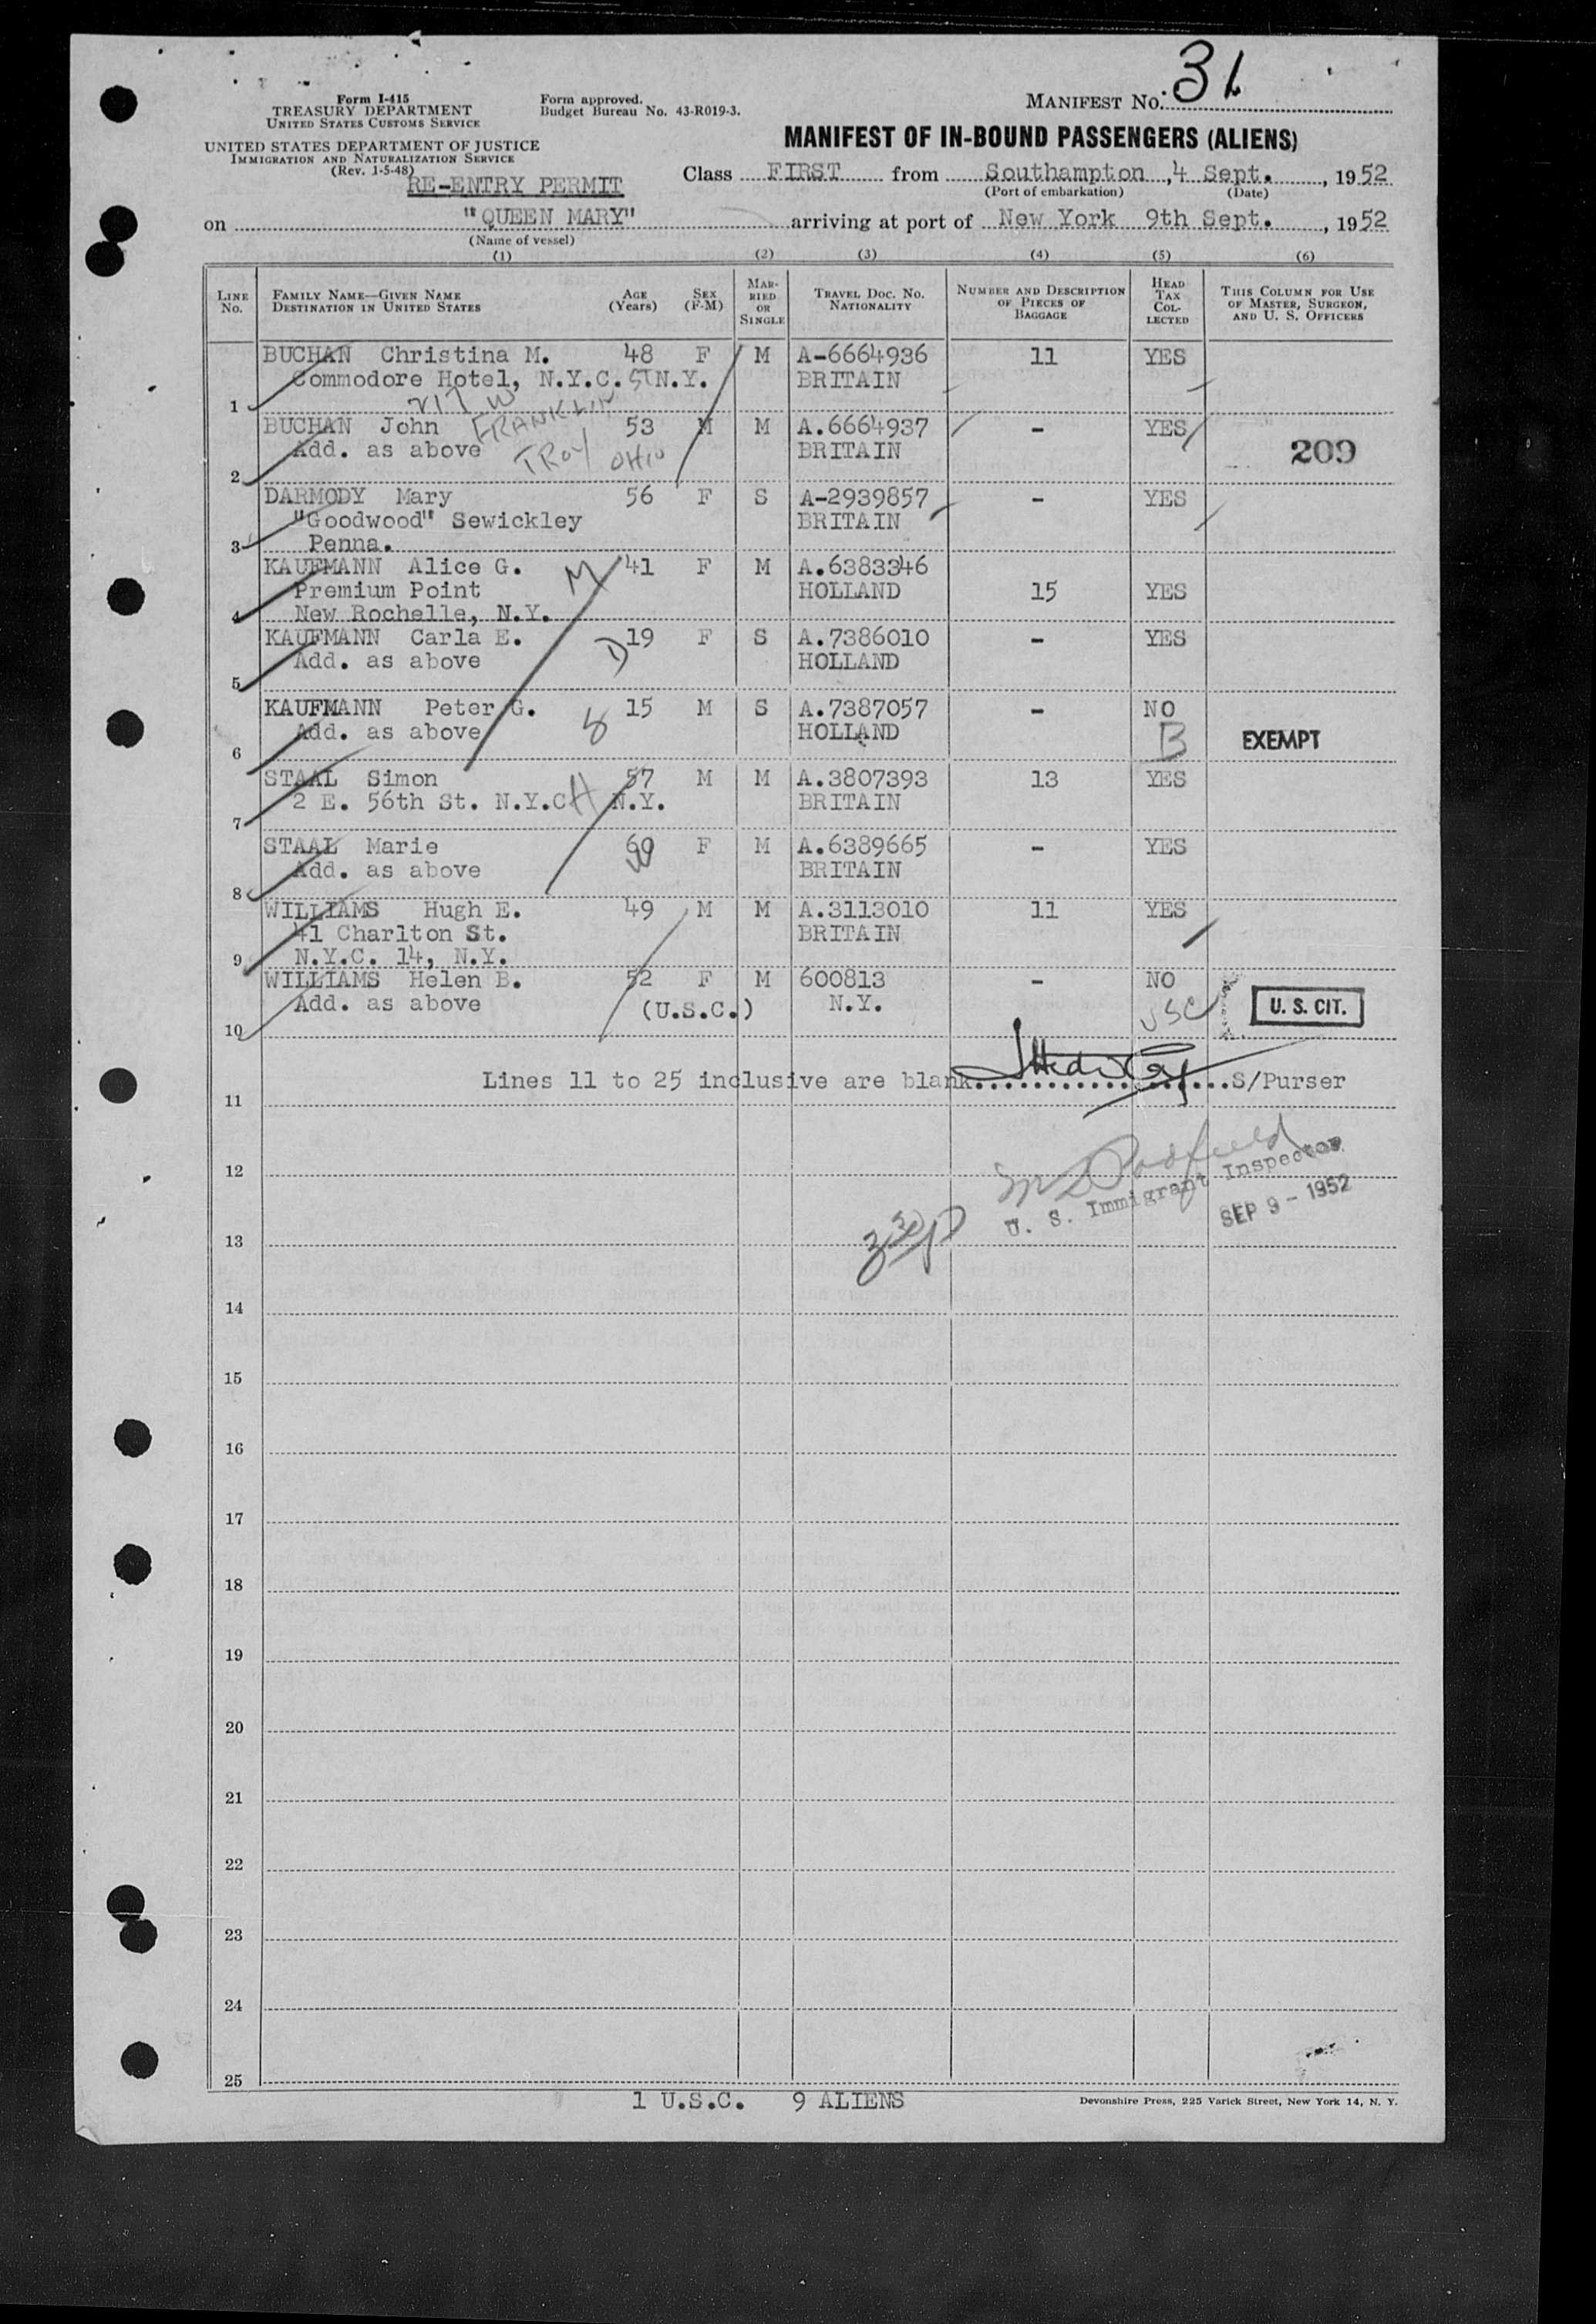 Form I-415
TREASURY DEPARTMENT
UNITED STATES CUSTOMS SERVICE
UNITED STATES DEPARTMENT OF JUSTICE
IMMIGRATION AND NATURALIZATION SERVICE
(Rev. 1-5-48)
Form approved.
Budget Bureau No. 43-R019-3.
MANIFEST No. 31
MANIFEST OF IN-BOUND PASSENGERS (ALIENS)
RE-ENTRY PERMIT
Class FIRST from Southampton, 4 Sept., 1952
(Port of embarkation) (Date)
on "QUEEN MARY" arriving at port of New York 9th Sept., 1952
(Name of vessel)
(1) (2) (3) (4) (5) (6)
LINE No. FAMILY NAME—GIVEN NAME DESTINATION IN UNITED STATES AGE (Years) SEX (F-M) MARRIED OR SINGLE TRAVEL DOC. NO. NATIONALITY NUMBER AND DESCRIPTION OF PIECES OF BAGGAGE HEAD TAX COLLECTED THIS COLUMN FOR USE OF MASTER, SURGEON, AND U. S. OFFICERS
BUCHAN Christina M. 48 F M A-6664936 11 YES
Commodore Hotel, N.Y.C. N.Y. BRITAIN
1 217 W FRANKLIN ST
BUCHAN John 53 M M A.6664937 - YES
Add. as above TROY OHIO BRITAIN 209
2
DARMODY Mary 56 F S A-2939857 - YES
"Goodwood" Sewickley BRITAIN
3 Penna.
KAUFMANN Alice G. M 41 F M A.6383346
Premium Point HOLLAND 15 YES
4 New Rochelle, N.Y.
KAUFMANN Carla E. D 19 F S A.7386010 - YES
Add. as above HOLLAND
5
KAUFMANN Peter G. 15 M S A.7387057 - NO
Add. as above HOLLAND B EXEMPT
6
STAAL Simon 57 M M A.3807393 13 YES
2 E. 56th St. N.Y.C. H N.Y. BRITAIN
7
STAAL Marie 60 F M A.6389665 - YES
Add. as above W BRITAIN
8
WILLIAMS Hugh E. 49 M M A.3113010 11 YES
41 Charlton St. BRITAIN
9 N.Y.C. 14, N.Y.
WILLIAMS Helen B. 52 F M 600813 - NO
Add. as above (U.S.C.) N.Y. USC U. S. CIT.
10
Lines 11 to 25 inclusive are blank. S/Purser
11
12
U. S. Immigrant Inspector
SEP 9 - 1952
13
14
15
16
17
18
19
20
21
22
23
24
25
1 U.S.C. 9 ALIENS
Devonshire Press, 225 Varick Street, New York 14, N. Y.